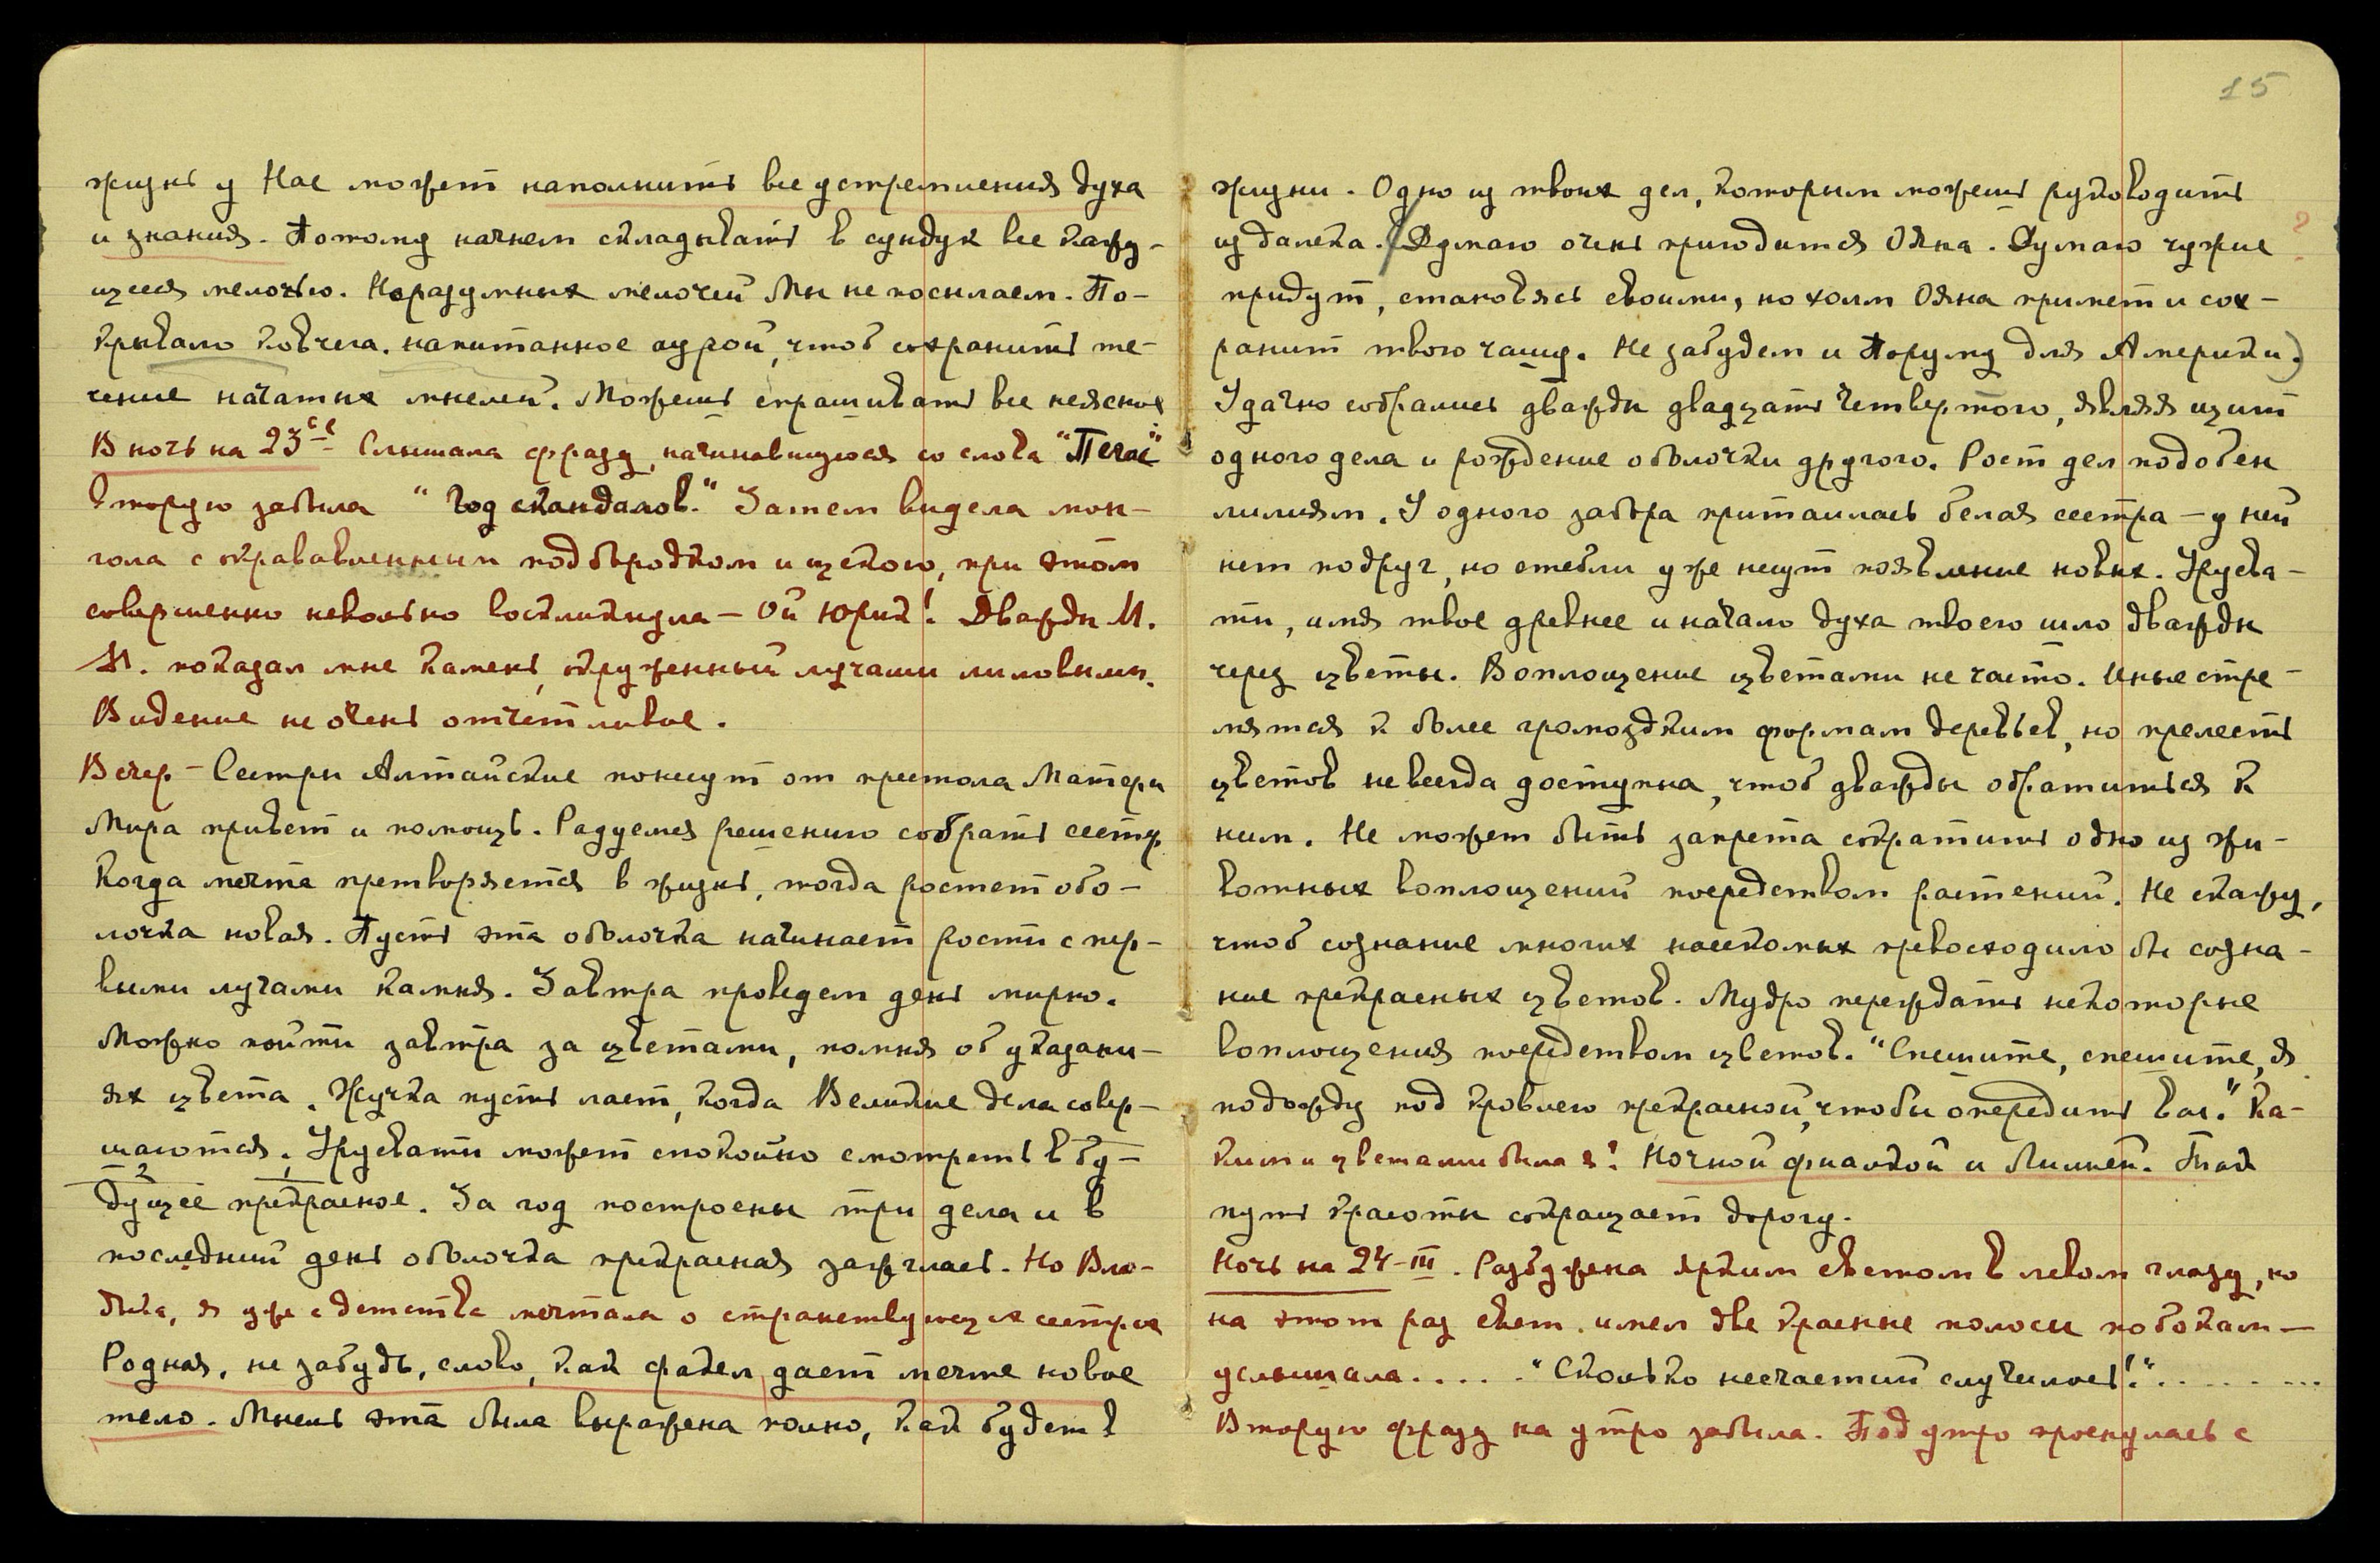 жизнь у Нас может наполнить все устремления духа
и знания. Потому начнем складывать в сундук все кажу-
щееся мелочью. Неразумных мелочей Мы не посылаем. По-
крывало ковчега, напитанное аурой, чтоб сохранить те-
чение начатых мыслей. Можешь спрашивать все неясное
В ночь на 23се Слышала фразу, начинавшуюся со слова "Пегас"
вторую забыла "Год скандалов." Затем видела мон-
гола с окрававленным подбородком и щекою, при этом
совершенно невольно воскликнула — Ой Юрик! Дважды М.
М. показал мне камень, окруженный лучами лиловыми.
Видение не очень отчетливое.
Вечер — Сестры Алтайские понесут от престола Матери
Мира привет и помощь. Радуемся решению собрать сестер.
Когда мечта претворяется в жизнь, тогда ростет обо-
лочка новая. Пусть эта оболочка начинает рости с пер-
выми лучами камня. Завтра проведем день мирно.
Можно пойти завтра за цветами, помня об указани-
ях цвета. Жучка пусть лает, когда Великие дела совер-
шаются. Урусвати может спокойно смотреть в бу-
2 1
дущее прекрасное. За год построены три дела и в
последний день оболочка прекрасная зажглась. Но Вла-
дыка, я уже с детства мечтала о странствующих сестрах
Родная, не забудь, слово, как факел, дает мечте новое
тело. Мысль эта была выражена полно, как будет в
15
жизни. Одно из твоих дел, которым можешь руководить
из далека. (Думаю очень пригодится Ояна. Думаю чужие ?
придут, становясь своими, но холм Ояна примет и сох-
ранит твою чашу. Не забудем и Поруму для Америки.)
Удачно собрались дважды двадцать четвертого, являя щит
одного дела и рождение оболочки другого. Рост дел подобен
лилиям. У одного забора притаилась белая сестра — у ней
нет подруг, но стебли уже несут появление новых. Урусва-
ти, имя твое древнее и начало духа твоего шло дважды
через цветы. Воплощение цветами не часто. Иные стре-
мятся к более громоздким формам деревьев, но прелесть
цветов не всегда доступна, чтоб дважды обратиться к
ним. Не может быть запрета сократить одно из жи-
вотных воплощений посредством растений. Не скажу,
чтоб сознание многих насекомых превосходило бы созна-
ние прекрасных цветов. Мудро переждать некоторые
воплощения посредством цветов. "Спешите, спешите, я
подожду под кровлею прекрасной, чтобы опередить вас." Ка-
кими цветами была я? Ночной фиалкой и Лилией. Так
путь красоты сокращает дорогу.
Ночь на 24-III. Разбужена ярким светом в левом глазу, но
на этот раз свет имел две красные полосы по бокам —
услышала..... "Сколько несчастий случилось!".........
Вторую фразу на утро забыла. Под утро проснулась с